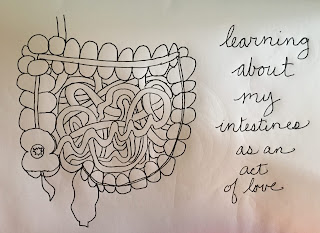 learning
about
my
intestines
as an
act
of love